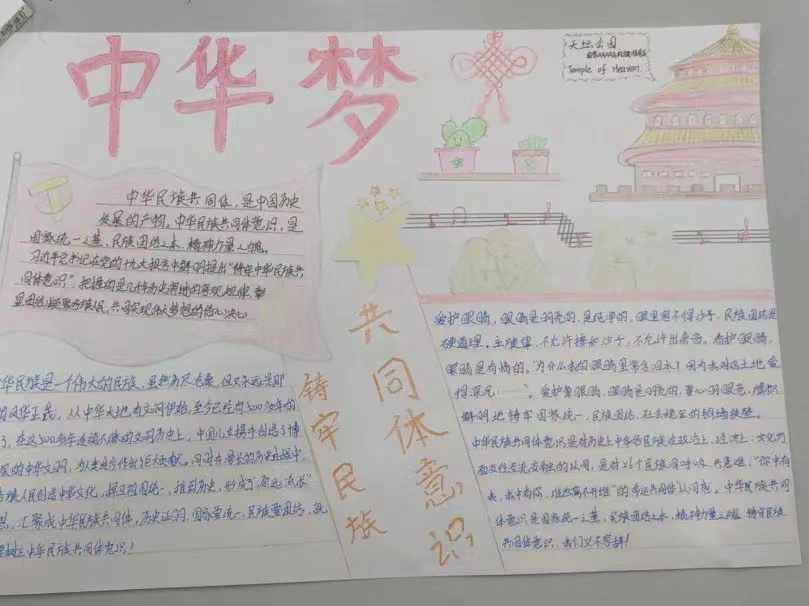 中华梦
天坛公园
Temple of Heaven
中华民族共同体，是中国历史
发展的产物。中华民族共同体意识，是
国家统一之基，民族团结之本，精神力量之魂。
习近平总书记在党的十九大报告中鲜明提出“铸牢中华民族共
同体意识”，
共同实现伟大梦想的信心决心
华民族是一个伟大的民族，
风华正茂。从中华大地有文明开始，至今已经有5000多年的
了，在这5000多年连绵不断的文明历史上，中国人民携手创造了博
的中华文明，为人类作出了巨大贡献，同时在漫长的历史进程中，
族人民创造中华文化，
汇聚成中华民族共同体。历史证明，国家要统一，民族要团结，就
中华民族共同体意识！
铸牢民族
共同体意识
爱护眼睛，眼睛是明亮的，是纯净的，眼里容不得沙子，民族团结是
硬道理，主旋律，不允许揉和沙子，不允许出杂音。爱护眼睛，
眼睛是有情的。“为什么我的眼睛里常含泪水？因为我对这土地爱
得深沉……”。爱护眼睛，眼睛是
鲜明地铸牢国家统一，民族团结，社会稳定的钢墙铁壁。
中华民族共同体意识是对历史上中华各民族在政治上、经济上、文化方
面交往交流交融的认同，是对56个民族同呼吸、共患难，“你中有
我，我中有你，谁也离不开谁”的命运共同体认同感。中华民族共同
体意识是国家统一之基，民族团结之本，精神力量之魂，铸牢民族
共同体意识，我们义不容辞！